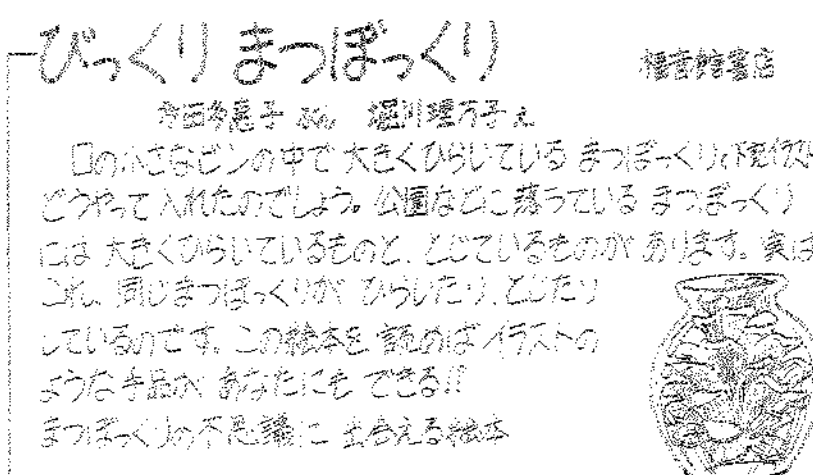 びっくりまつぼっくり
福音館書店
多田多恵子 ぶん 堀川理万子 え
口の小さなビンの中で大きくひらいている まつぼっくり(下見イラスト
どうやって入れたのでしょう。公園などに落ちている まつぼっくり
には 大きくひらいているものと、とじているものが あります。実は
これ、同じまつぼっくりが ひらいたり、とじたり
しているのです。この絵本を 読めば イラストの
ような手品が あなたにも できる!!
まつぼっくりの不思議に 出合える絵本